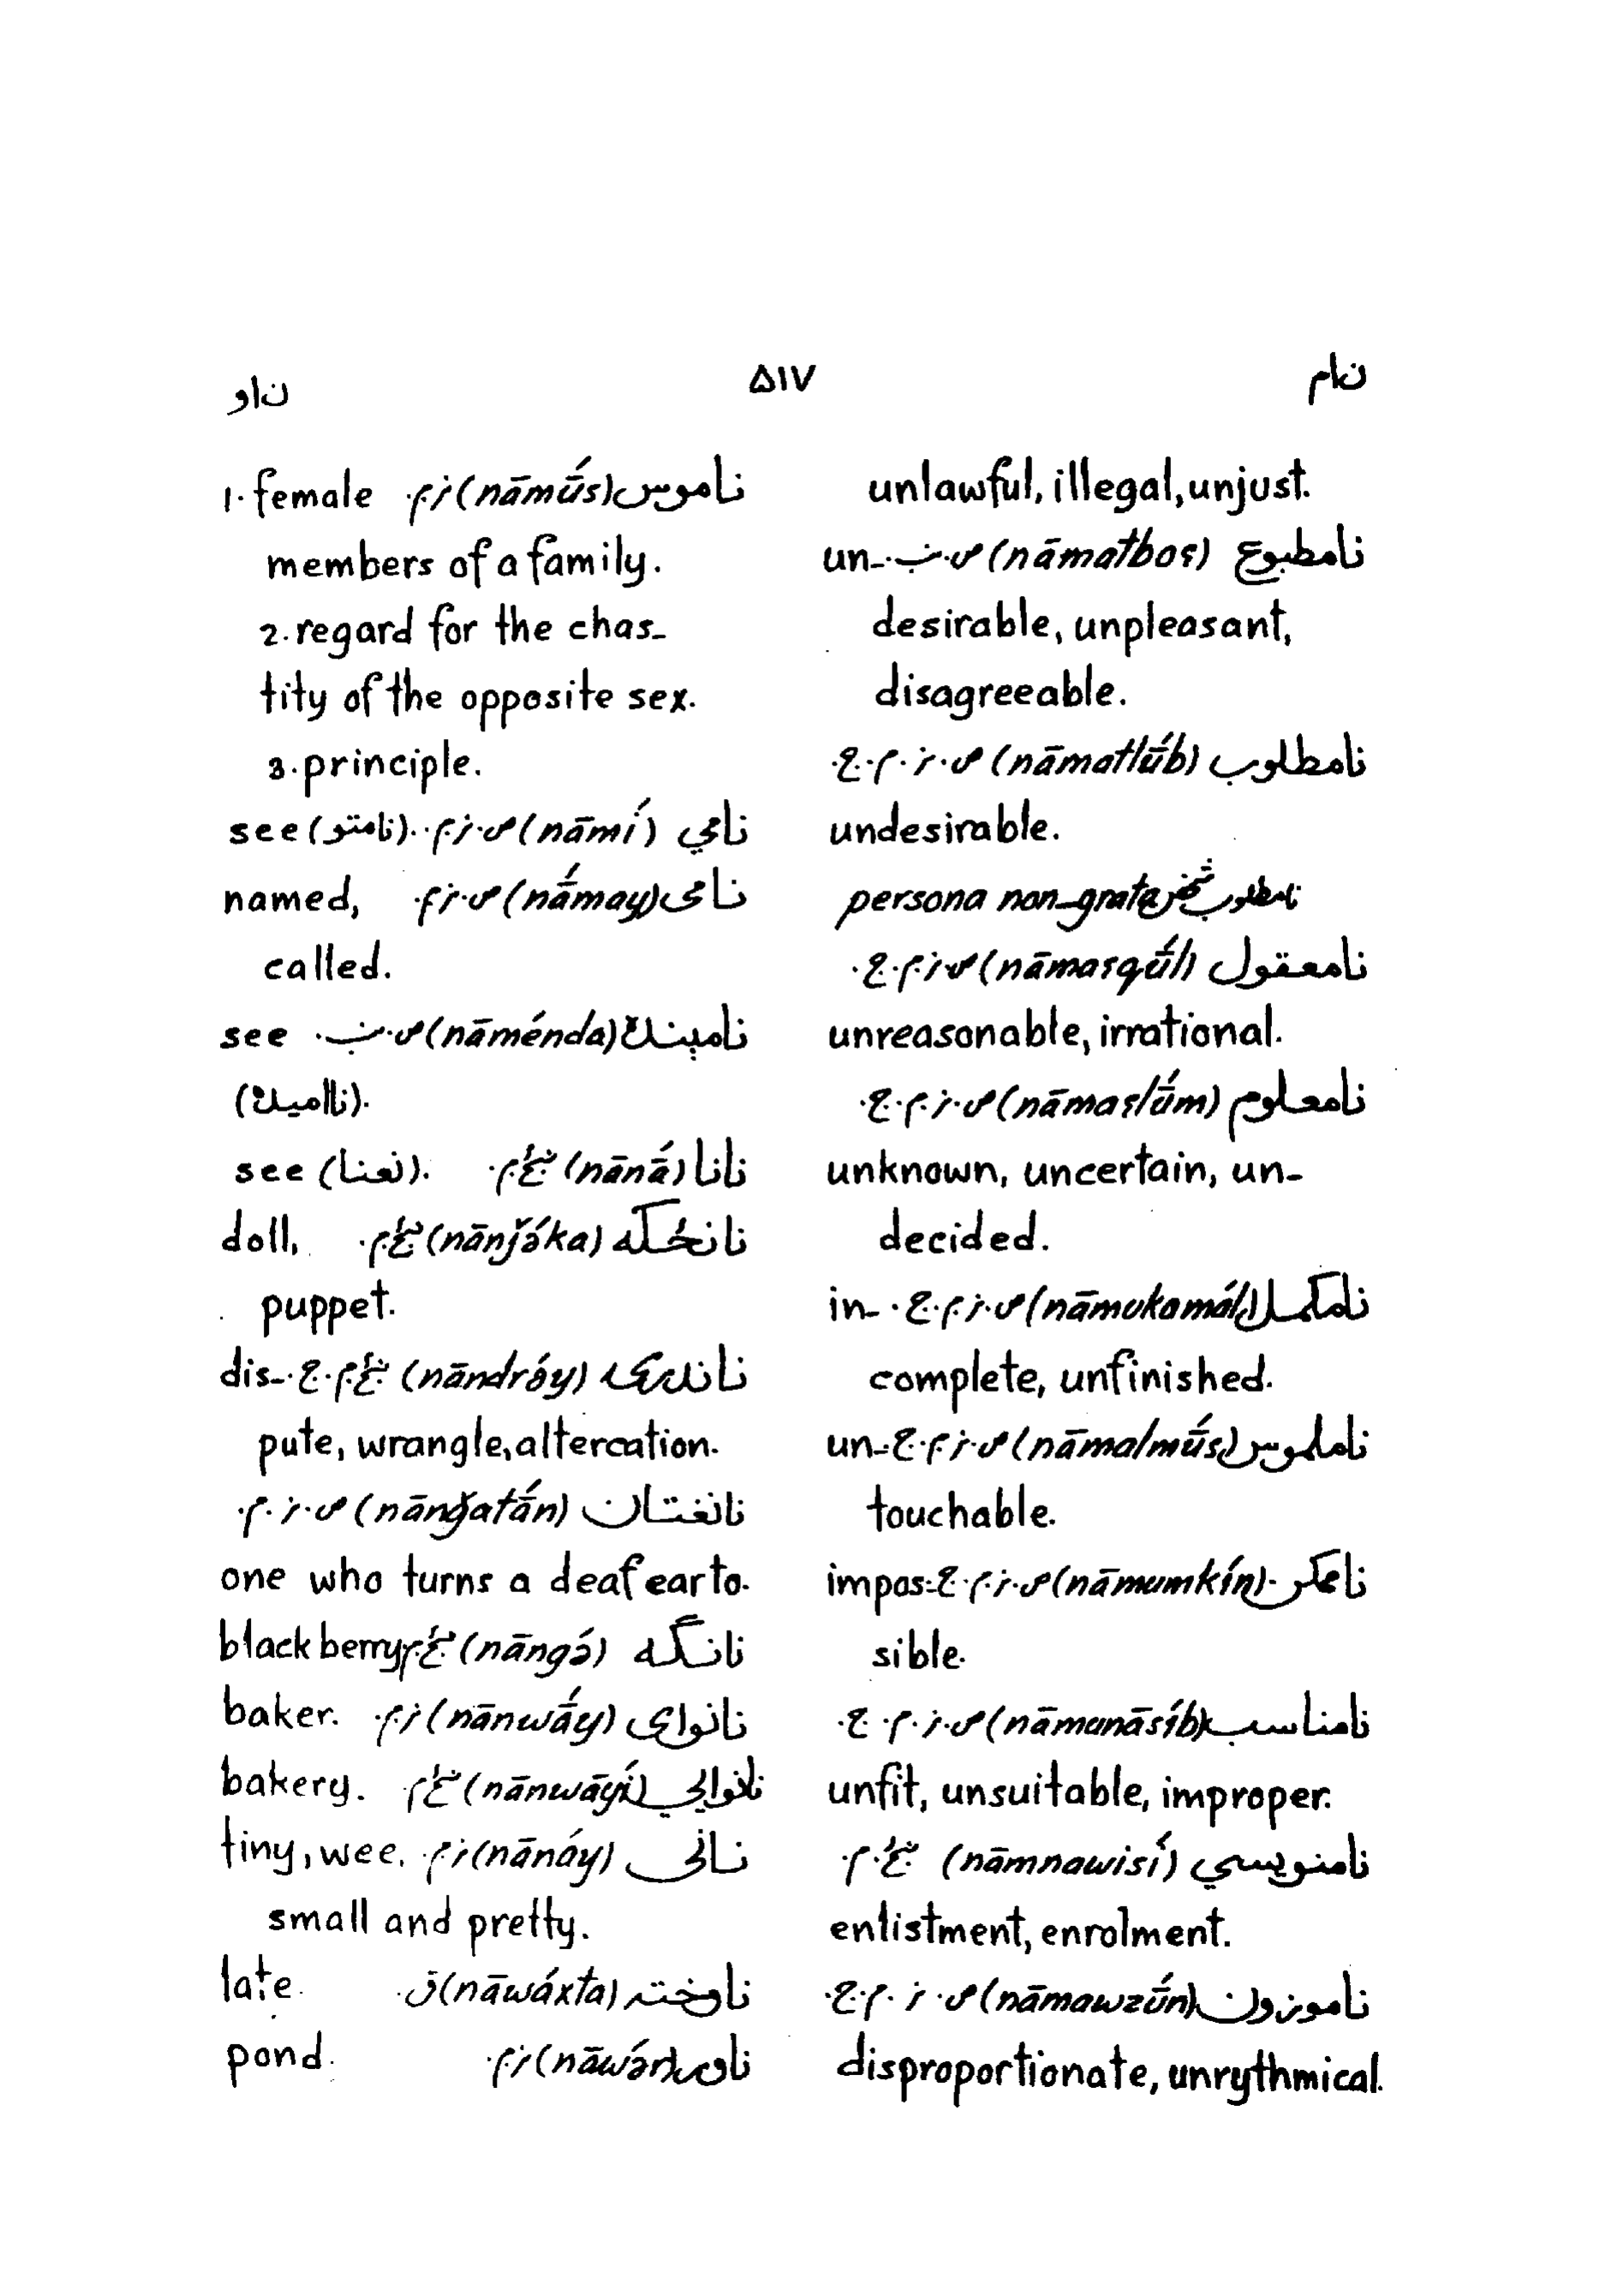 نام ۵۱۷ ناو
unlawful, illegal, unjust.
نامطبوع (nāmatboʕ) ص. ب. un-
desirable, unpleasant,
disagreeable.
نامطلوب (nāmatlū́b) ص. ز. م. ج.
undesirable.
persona non-grata
نامعقول (nāmaʕqū́l) ص. ز. م. ج.
unreasonable, irrational.
نامعلوم (nāmaʕlū́m) ص. ز. م. ج.
unknown, uncertain, un-
decided.
نامکمل (nāmukamál) ص. ز. م. ج. in-
complete, unfinished.
ناملموس (nāmalmū́s) ص. ز. م. ج. un-
touchable.
ناممکن (nāmumkín) ص. ز. م. ج. impos-
sible.
نامناسب (nāmunāsíb) ص. ز. م. ج.
unfit, unsuitable, improper.
نامنویسي (nāmnawisí)
enlistment, enrolment.
ناموزون (nāmawzū́n) ص. ز. م. ج.
disproportionate, unrythmical.
ناموس (nāmū́s) ز. م. 1. female
members of a family.
2. regard for the chas-
tity of the opposite sex.
3. principle.
نامي (nāmí) ص. ز. م. see (نامتو).
نامی (nā́may) ص. ز. م. named,
called.
نامېنده (nāménda) ص. ب. see
(ناامیده).
نانا (nānā́) see (نعنا).
نانځکه (nānǰə́ka) doll,
puppet.
ناندرۍ (nāndrə́y) dis-
pute, wrangle, altercation.
نانغتان (nānğatā́n) ص. ز. م.
one who turns a deaf ear to.
نانګه (nāngə́) black berry
نانوای (nānwā́y) ز. م. baker.
نانوايي (nānwāyí) bakery.
نانی (nānáy) ز. م. tiny, wee,
small and pretty.
ناوخته (nāwáxta) ق. late.
ناور (nāwə́r) ز. م. pond.